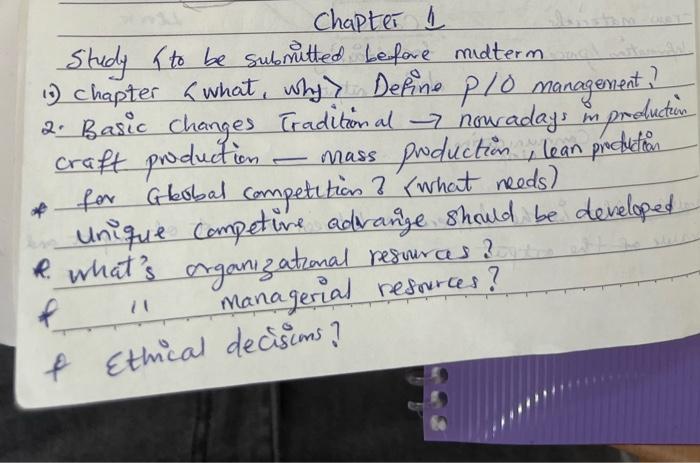 Chapter 1
Study (to be submitted before midterm
1) chapter <what, why> Define P/O management?
2. Basic changes Traditional → nowadays in production
craft production — mass production, lean production
* for Global competition? (what needs)
unique competive advange should be developed
* what's organizational resources?
* " managerial resources?
* Ethical decisions?